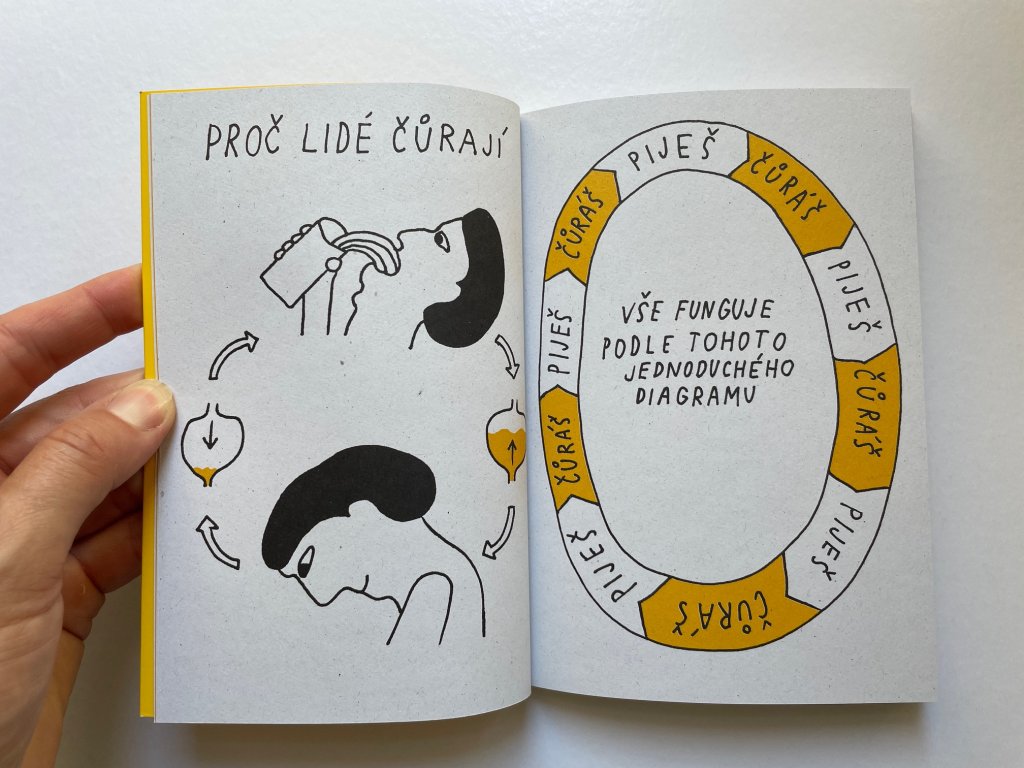 PROČ LIDÉ ČŮRAJÍ
PIJEŠ
ČŮRÁŠ
PIJEŠ
ČŮRÁŠ
PIJEŠ
ČŮRÁŠ
PIJEŠ
ČŮRÁŠ
PIJEŠ
ČŮRÁŠ
VŠE FUNGUJE
PODLE TOHOTO
JEDNODUCHÉHO
DIAGRAMU